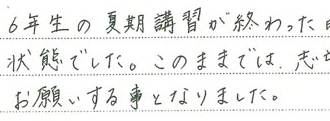 6年生の夏期講習が終わった
状態でした。このままでは、志
お願いする事となりました。